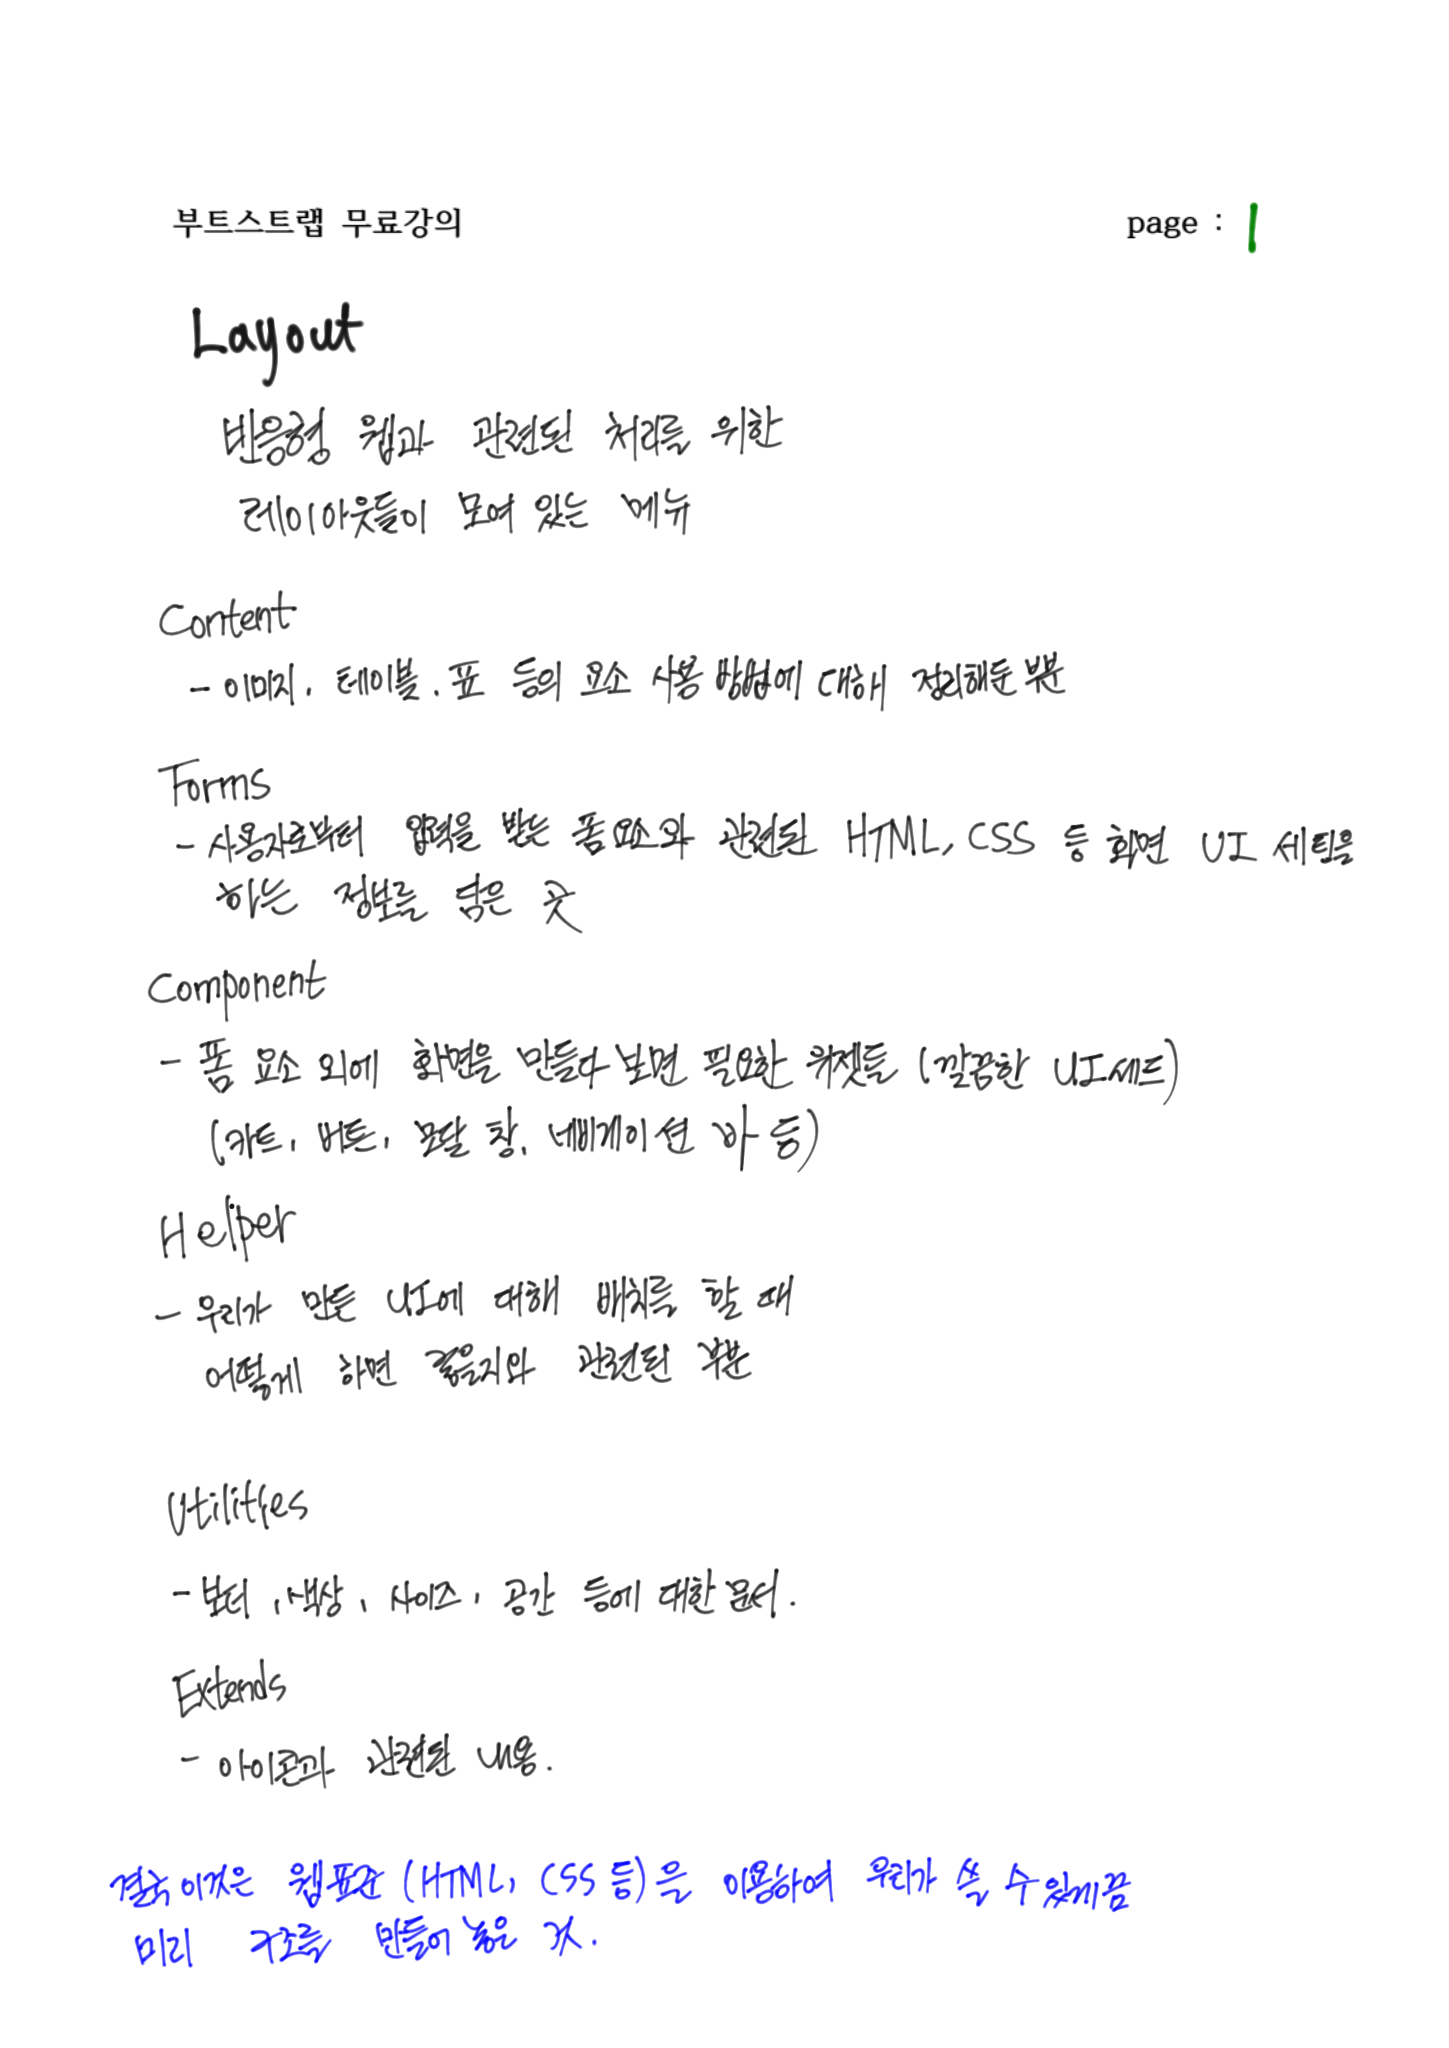 부트스트랩 무료강의
page : 1
Layout
반응형 웹과 관련된 처리를 위한
레이아웃들이 모여 있는 메뉴
Content
- 이미지, 테이블, 표 등의 요소 사용 방법에 대해 정리해둔 부분
Forms
- 사용자로부터 입력을 받는 폼 요소와 관련된 HTML, CSS 등 화면 UI 세팅을
하는 정보를 담은 곳
Component
- 폼 요소 외에 화면을 만들다 보면 필요한 위젯들 (깔끔한 UI세트)
(카트, 버튼, 모달 창, 네비게이션 바 등)
Helper
- 우리가 만든 UI에 대해 배치를 할 때
어떻게 하면 좋을지와 관련된 부분
Utilities
- 보더, 색상, 사이즈, 공간 등에 대한 문서.
Extends
- 아이콘과 관련된 내용.
결국 이것은 웹표준 (HTML, CSS 등)을 이용하여 우리가 쓸 수 있게끔
미리 구조를 만들어 놓은 것.